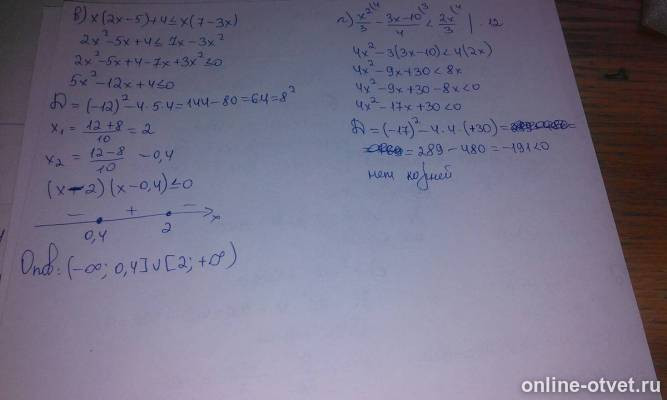 в) x(2x-5)+4≤x(7-3x)
2x²-5x+4≤7x-3x²
2x²-5x+4-7x+3x²≤0
5x²-12x+4≤0
D=(-12)²-4·5·4=144-80=64=8²
x₁=12+8/10=2
x₂=12-8/10-0,4
(x-2)(x-0,4)≤0
- + - x
0,4 2
Отв: (-∞; 0,4]∪[2; +∞)
г) x²⁽⁴/3-3x-10⁽³/4<2x⁽⁴/3 | · 12
4x²-3(3x-10)<4(2x)
4x²-9x+30<8x
4x²-9x+30-8x<0
4x²-17x+30<0
D=(-17)²-4·4·(+30)=
=289-480=-191<0
нет корней
online-otvet.ru